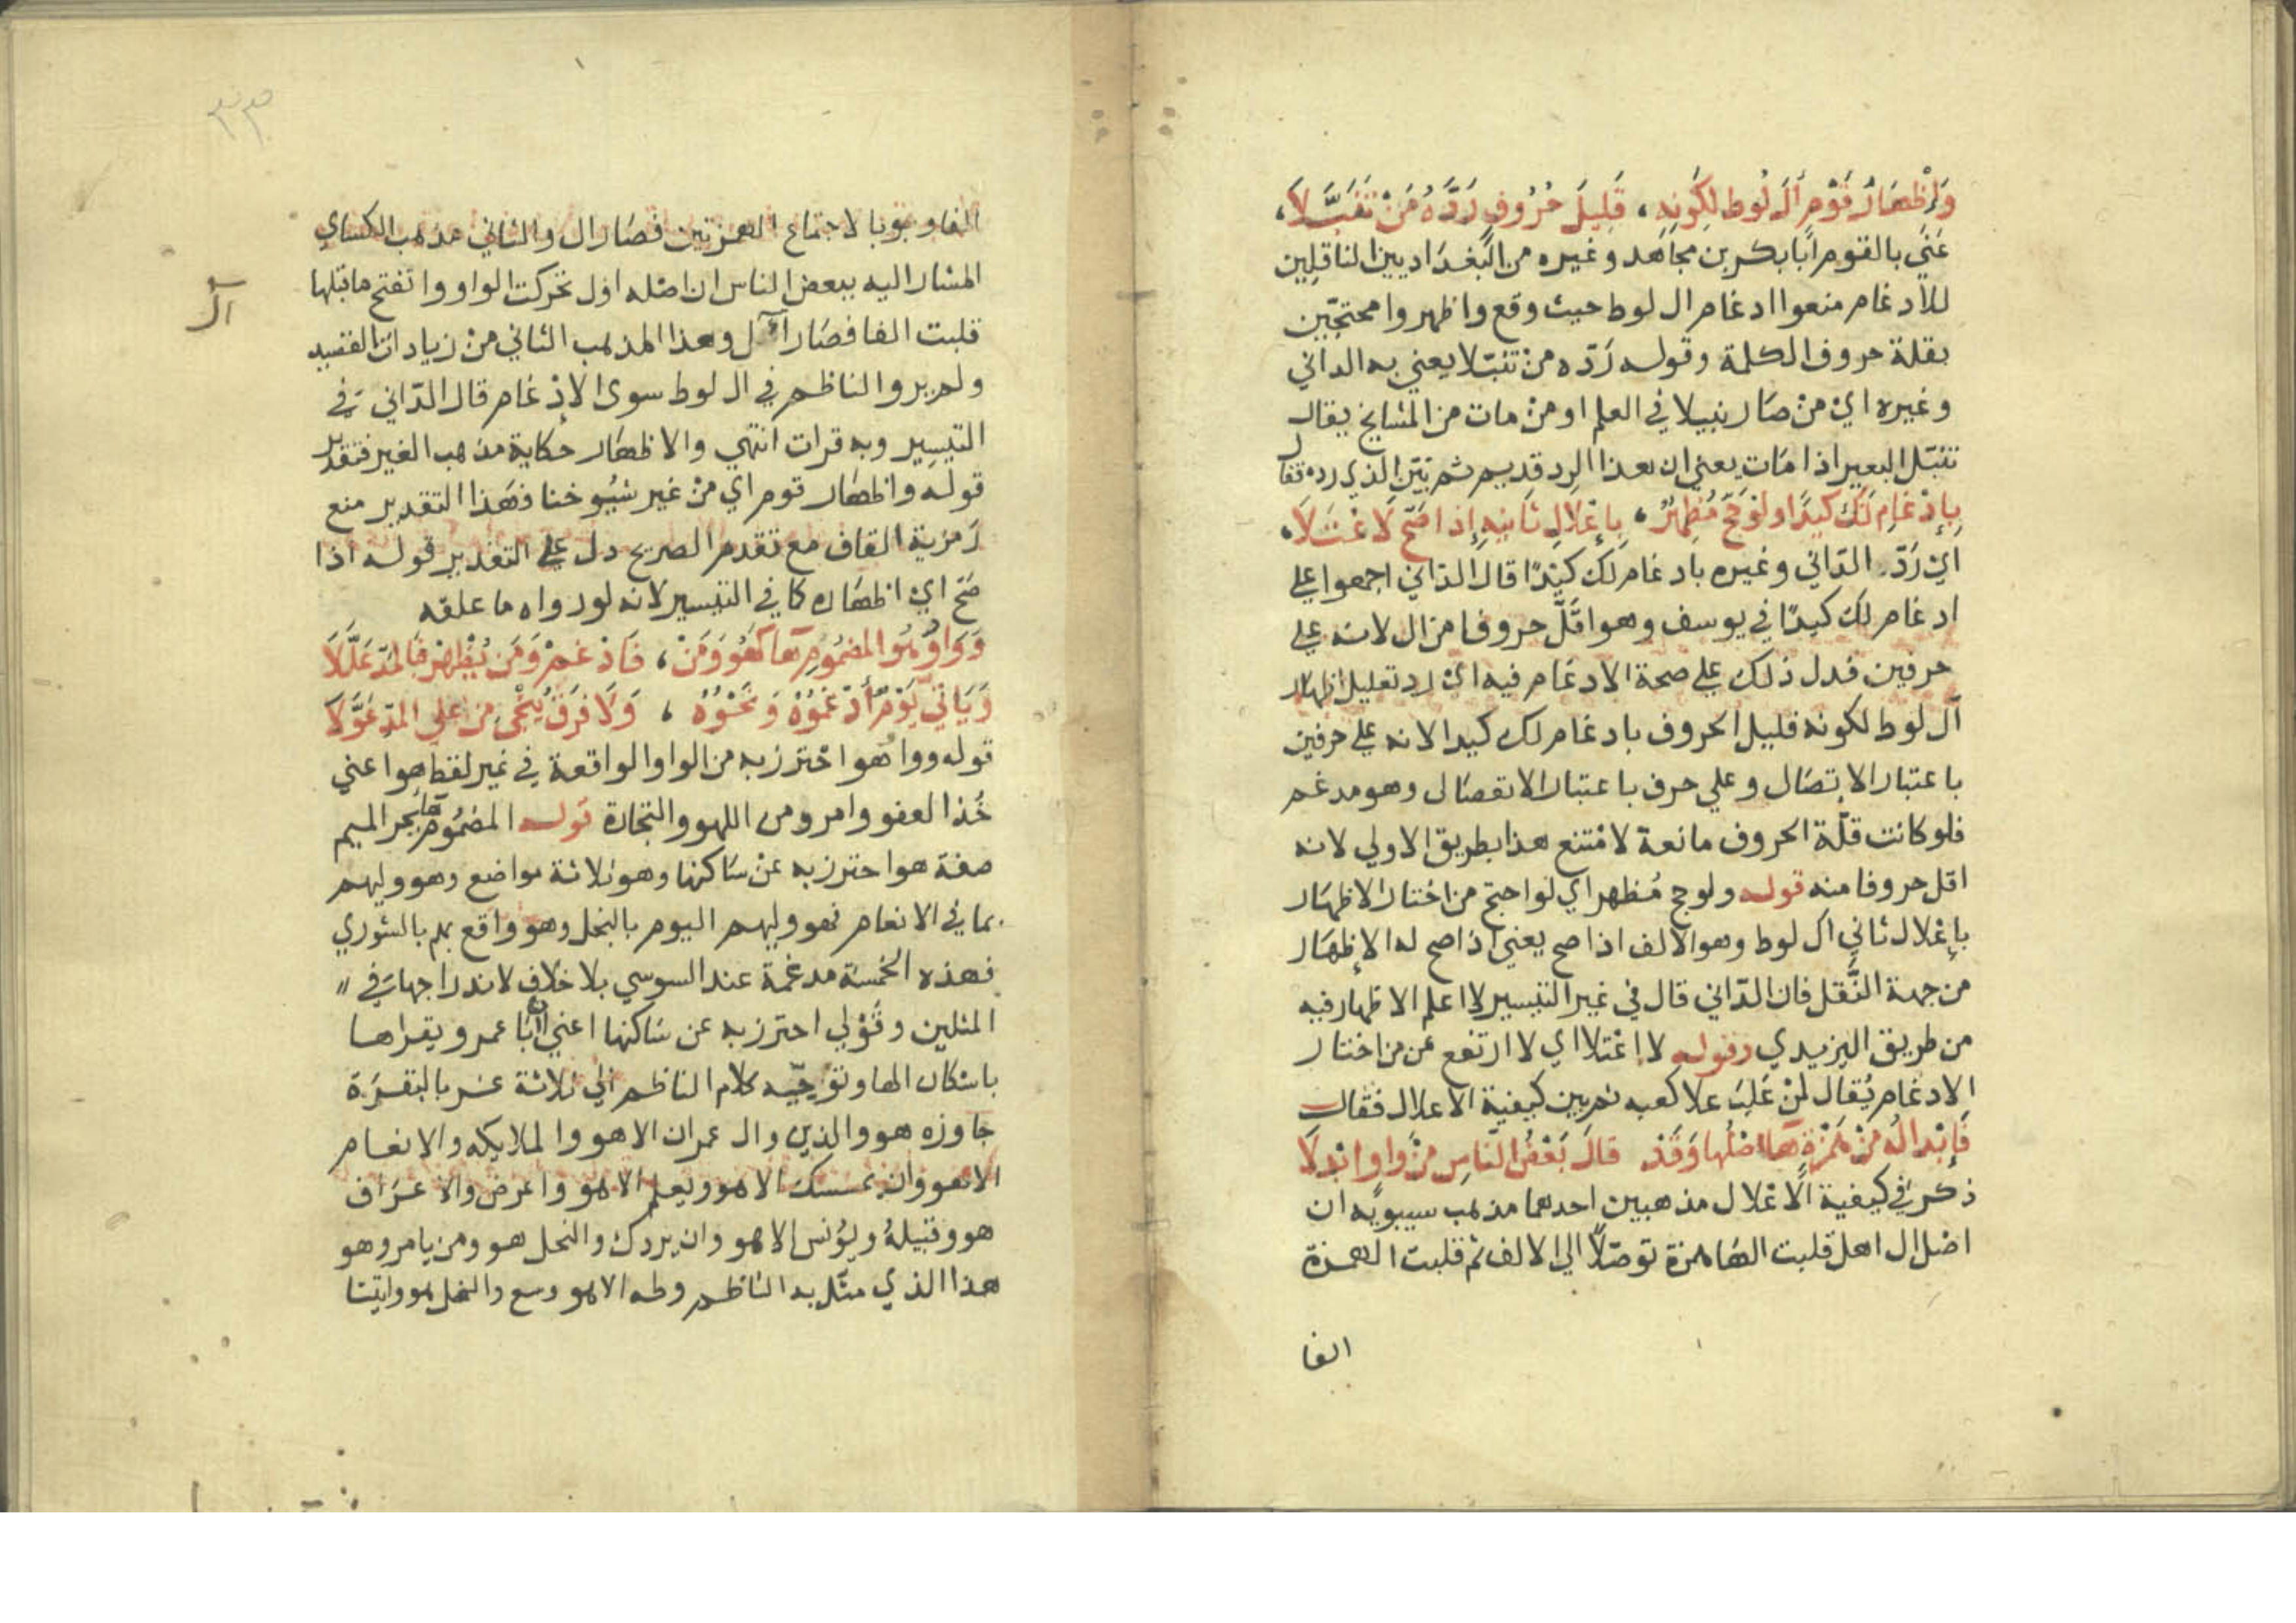 وَإِظْهَارُ قَوْمٍ آلَ لُوطٍ لِكَوْنِهِ، قَلِيلَ حُرُوفٍ رَدَّهُ مَنْ تَنَبَّلَا،
عَنَى بالقوم أبا بكر بن مجاهد وغيره من البغداديين الناقلين
للادغام منعوا ادغام ال لوط حيث وقع واظهروا محتجين
بقلة حروف الكلمة وقوله رَدّه من تنبّلا يعني به الداني
وغيره اي من صار نبيلا في العلم او من مات من المشايخ يقال
تنبّل البعير اذا مات يعني ان هذا الرد قديم ثم بيّن الذي رده فقال
بِإِدْغَامِ لَكَ كَيْدًا ولَوْ حَجَّ مُظْهِرٌ، بِإِعْلَالِ ثَانِيهِ إِذَا صَحَّ لَاعْتَلَا،
اي رَدّه الدّاني وغيره بادغام لك كيدًا قال الداني اجمعوا علي
ادغام لك كيدًا في يوسف وهو اقلّ حروفا من ال لانه علي
حرفين فدل ذلك علي صحة الادغام فيه اي رد تعليل اظهار
آل لوط لكونه قليل الحروف بادغام لك كيدا لانه علي حرفين
باعتبار الاتصال وعلي حرف باعتبار الانفصال وهو مدغم
فلو كانت قلّة الحروف مانعة لامتنع هذا بطريق الاولي لانه
اقل حروفا منه قوله ولو حج مُظهر اي لو احتج من اختار الاظهار
بإعلال ثاني ال لوط وهو الالف اذا صح يعني اذا صح له الإظهار
من جهة النَّقل فان الدّاني قال في غير التيسير لا اعلم الاظهار فيه
من طريق اليزيدي وقوله لا اعتلا اي لا ارتفع عن من اختار
الادغام يُقال لمن غلب علا كعبه ثم بين كيفية الاعلال فقال
فَإِبْدَالُهُ مِنْ هَمْزَةٍ هَاءٌ اصْلُهَا وَقَدْ قَالَ بَعْضُ النَّاسِ مِنْ وَاوٍ ابْدِلَا
ذكر في كيفية الاعلال مذهبين احدهما مذهب سيبويه ان
اصل ال اهل قلبت الها همزة توصّلًا الي الالف ثم قلبت الهمزة
الفا
٣٣
الفا وجوبا لاجتماع الهمزتين فصار ال والثاني مذهب الكساي
المشار اليه ببعض الناس ان اصله اول تحركت الواو وانفتح ما قبلها
ال
قلبت الفا فصار ال وهذا المذهب الثاني من زيادات القصيد
ولم يرو الناظم في ال لوط سوى الإدغام قال الدّاني في
التيسير وبه قرات انتهي والاظهار حكاية مذهب الغير فتقدير
قوله واظهار قوم اي من غير شيوخنا فهذا التقدير منع
رمزية القاف مع تقدم الصريح دل علي التقدير قوله اذا
صَحّ اي اظهاره كما في التيسير لانه لو رواه ما علقه
وَوَاوُ هُوَ المَضْمُومِ هَاءً كَهُوَ وَمَنْ، فَأَدْغِمْ وَمَنْ يُظْهِرْ فَبِالمَدِّ عَلَّلَا
وَيَأْتِيَ يَوْمٌ أَدْغَمُوهُ وَنَحْوُهُ، وَلَا فَرْقَ يُنْجِي مَنْ عَلَى المَدِّ عَوَّلَا
قوله وواو هو احترز به من الواو الواقعة في غير لفظ هو اعني
خُذ العفو وامر ومن اللهو والتجارة قوله المضموم ها بجر الميم
صفة هو احترز به عن ساكنها وهو ثلاثة مواضع وهو وليهم
بما في الانعام فهو وليهم اليوم بالنحل وهو واقع بهم بالشوري
فهذه الخمسة مدغمة عند السوسي بلا خلاف لاندراجها في
المثلين وقولي احترز به عن ساكنها اعني ان أبا عمرو يقراها
باسكان الها وتوجيه كلام الناظم الي ثلاثة عشر بالبقرة
جاوزه هو والذين وال عمران الا هو والملايكة والانعام
الا هو وان يمسسك الا هو ويعلم الا هو واعرض والاعراف
هو وقبيلهُ ويونس الا هو وان يردك والنحل هو ومن يامر وهو
هذا الذي مثّل به الناظم وطه الا هو وسع والنمل هو واوتينا